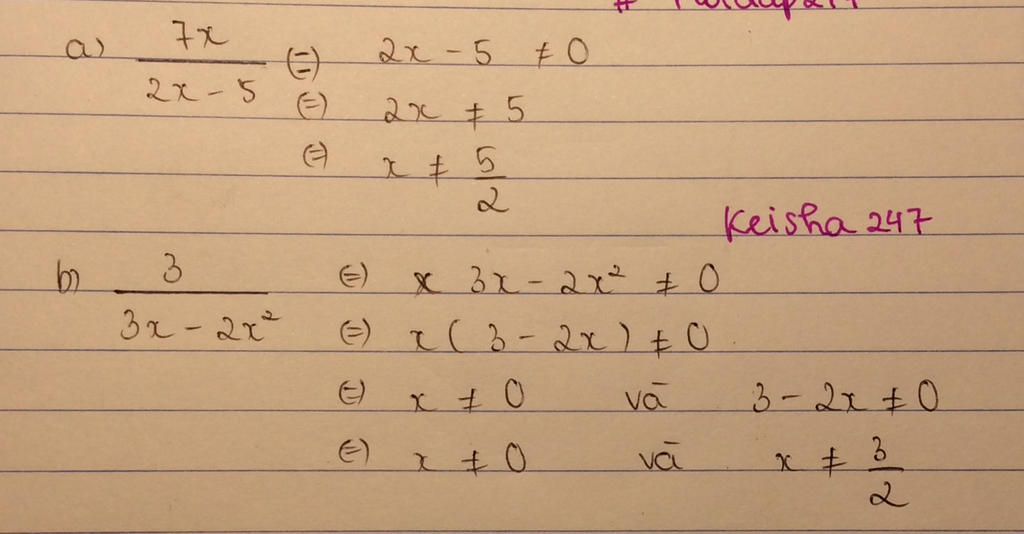 a) 7x / 2x - 5 (=) 2x - 5 ≠ 0
(=) 2x ≠ 5
(=) x ≠ 5/2
Keisha 247
b) 3 / 3x - 2x² (=) 3x - 2x² ≠ 0
(=) x ( 3 - 2x ) ≠ 0
(=) x ≠ 0 vā 3 - 2x ≠ 0
(=) x ≠ 0 vā x ≠ 3/2